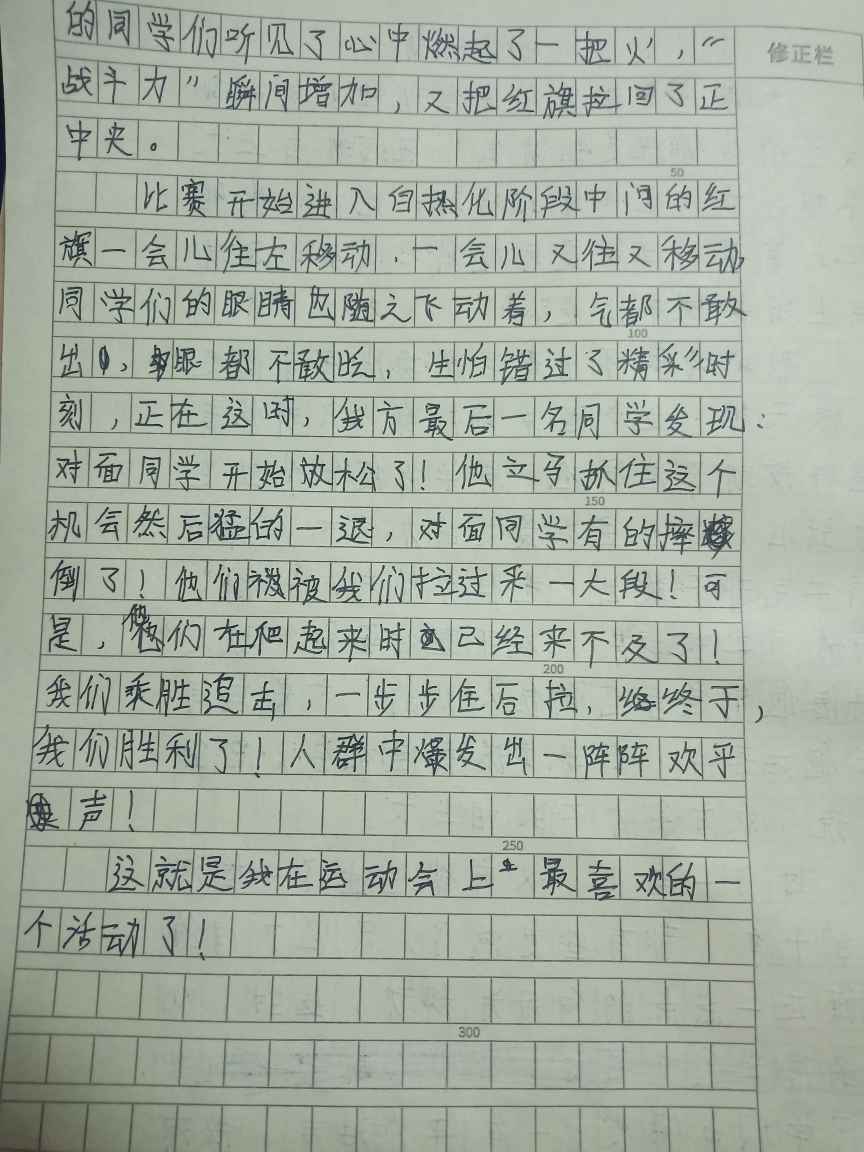 的同学们听见了心中燃起了一把火，“
修正栏
战斗力”瞬间增加，又把红旗拉回了正
中央。
50
比赛开始进入白热化阶段中间的红
旗一会儿往左移动．一会儿又往又移动
同学们的眼睛也随之飞动着，气都不敢
100
出，眼都不敢眨，生怕错过了精彩时
刻，正在这时，我方最后一名同学发现：
对面同学开始放松了！他立马抓住这个
150
机会然后猛的一退，对面同学有的摔
倒了！他们被被我们拉过来一大段！可
是，他们在爬起来时已经来不及了！
200
我们乘胜追击，一步步往后拉，终于，
我们胜利了！人群中爆发出一阵阵欢乎
声！
250
这就是我在运动会上最喜欢的一
个活动了！
300